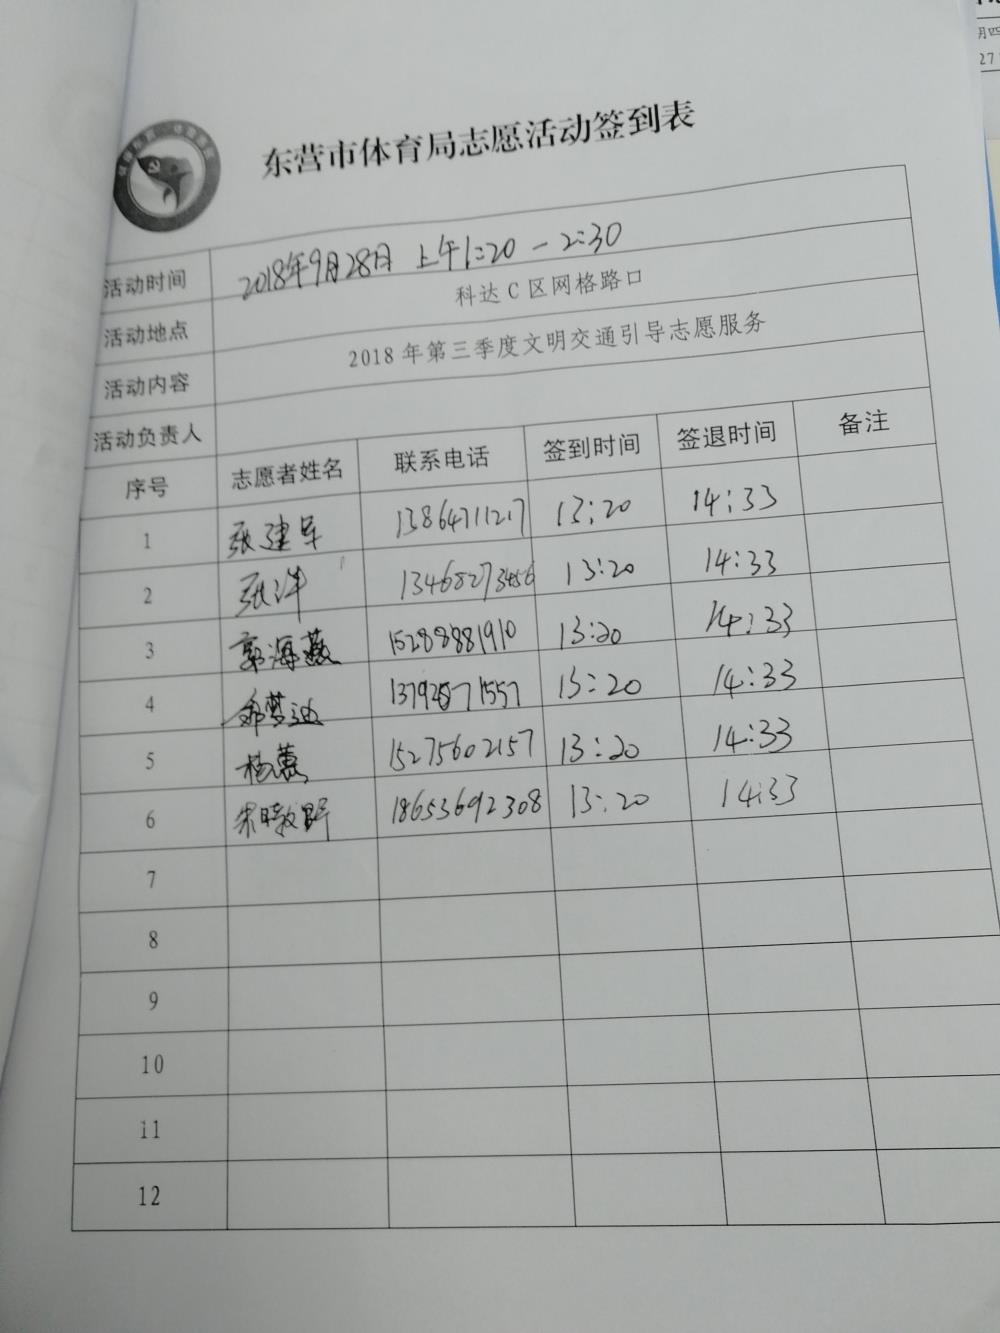 东营市体育局志愿活动签到表
活动时间 2018年9月28日 上午1:20-2:30
活动地点 科达C区网格路口
活动内容 2018年第三季度文明交通引导志愿服务
活动负责人
序号 志愿者姓名 联系电话 签到时间 签退时间 备注
1 张建军 13864711217 13:20 14:33
2 张洋 13468273456 13:20 14:33
3 郭海燕 15288881910 13:20 14:33
4 13792571557 13:20 14:33
5 杨蕙 15275602157 13:20 14:33
6 18653692308 13:20 14:33
7
8
9
10
11
12
期四
27